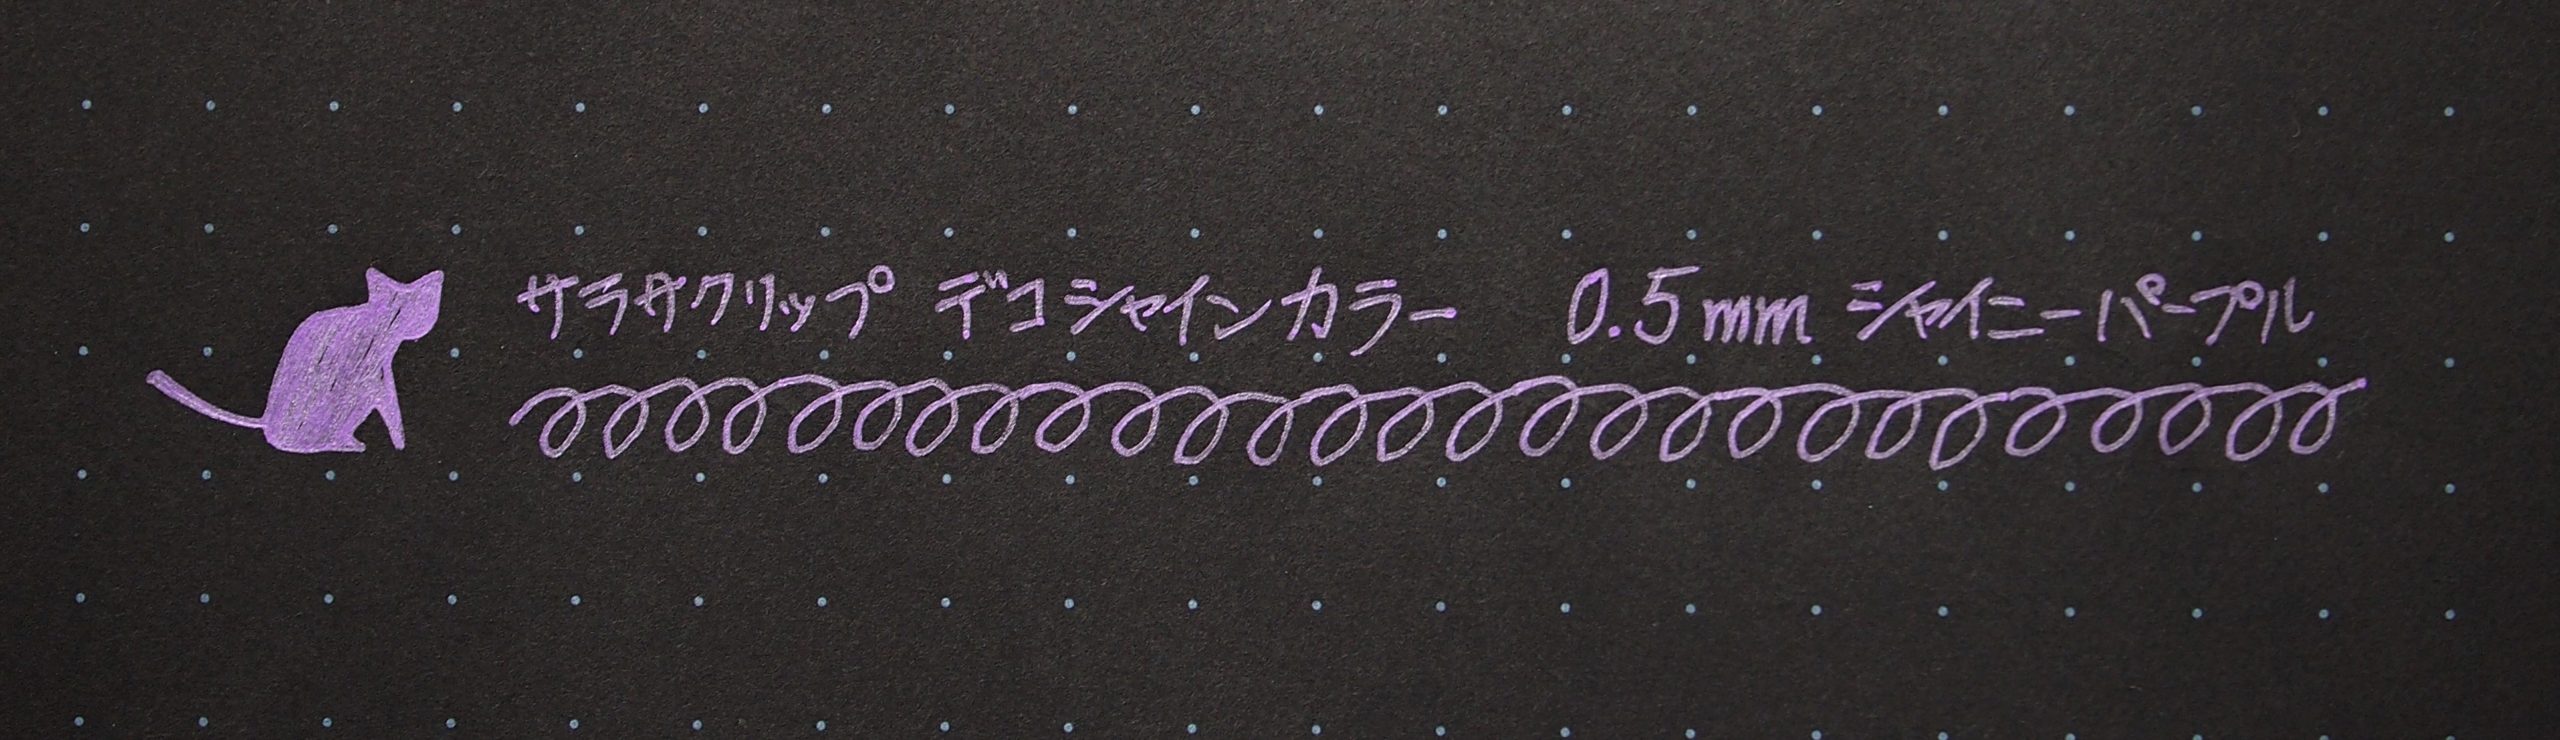 サラサクリップ デコシャインカラー 0.5mm シャイニーパープル